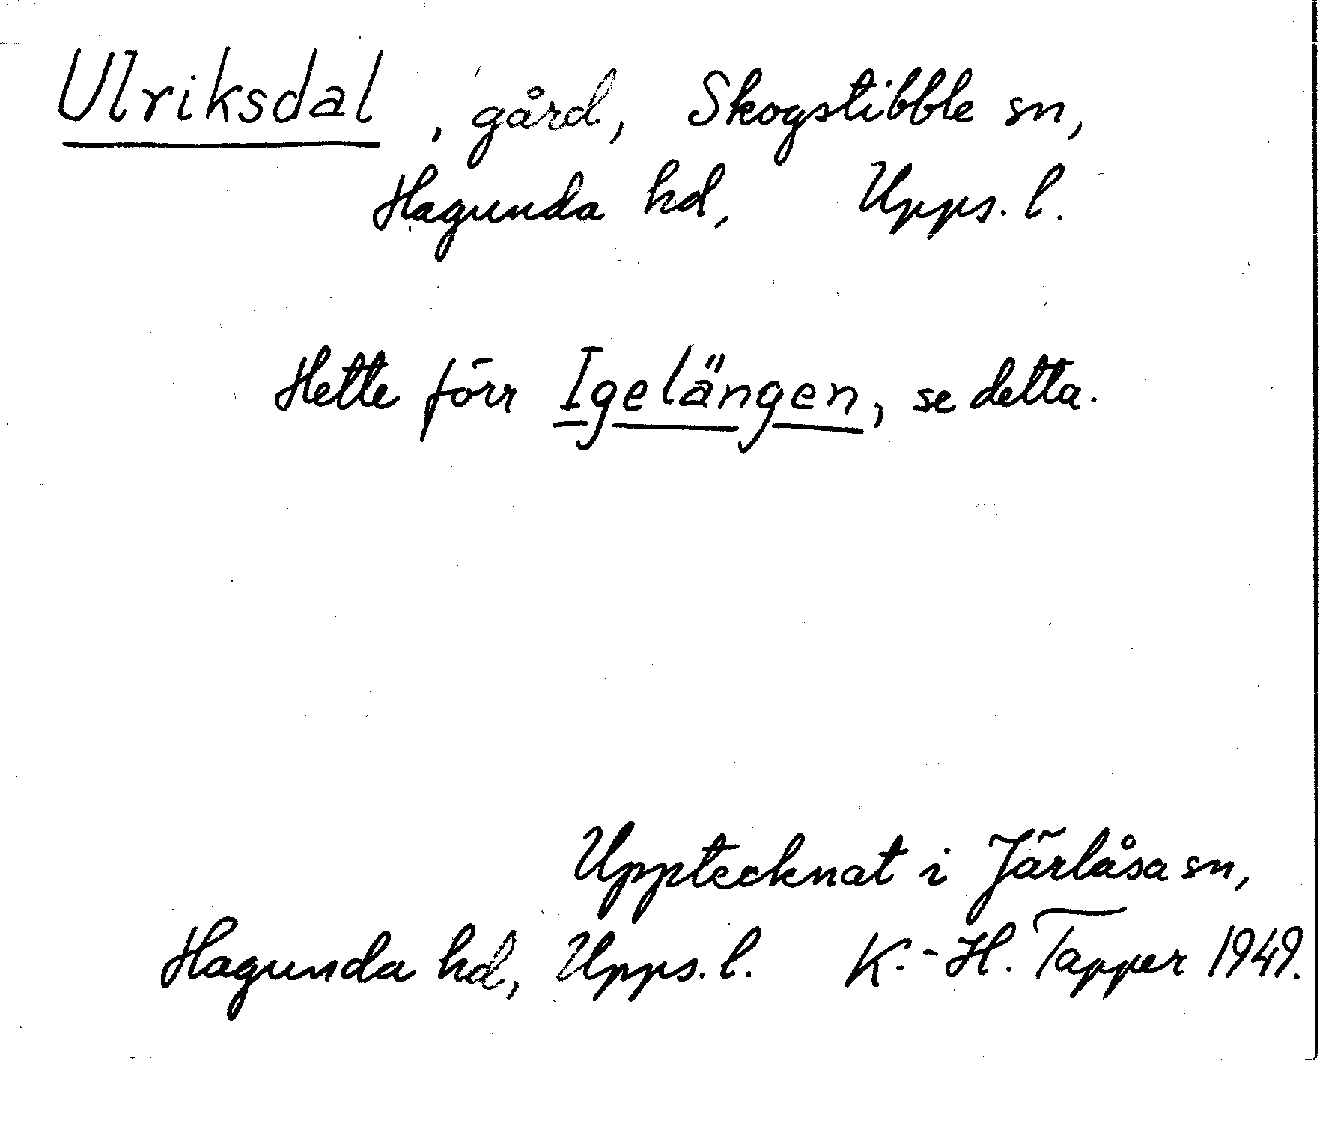 Ulriksdal, gård, Skogstibble sn,
Hagunda hd, Upps. l.
Hette förr Igelängen, se detta.
Upptecknat i Järlåsa sn,
Hagunda hd, Upps. l. K.-H. Tapper 1949.